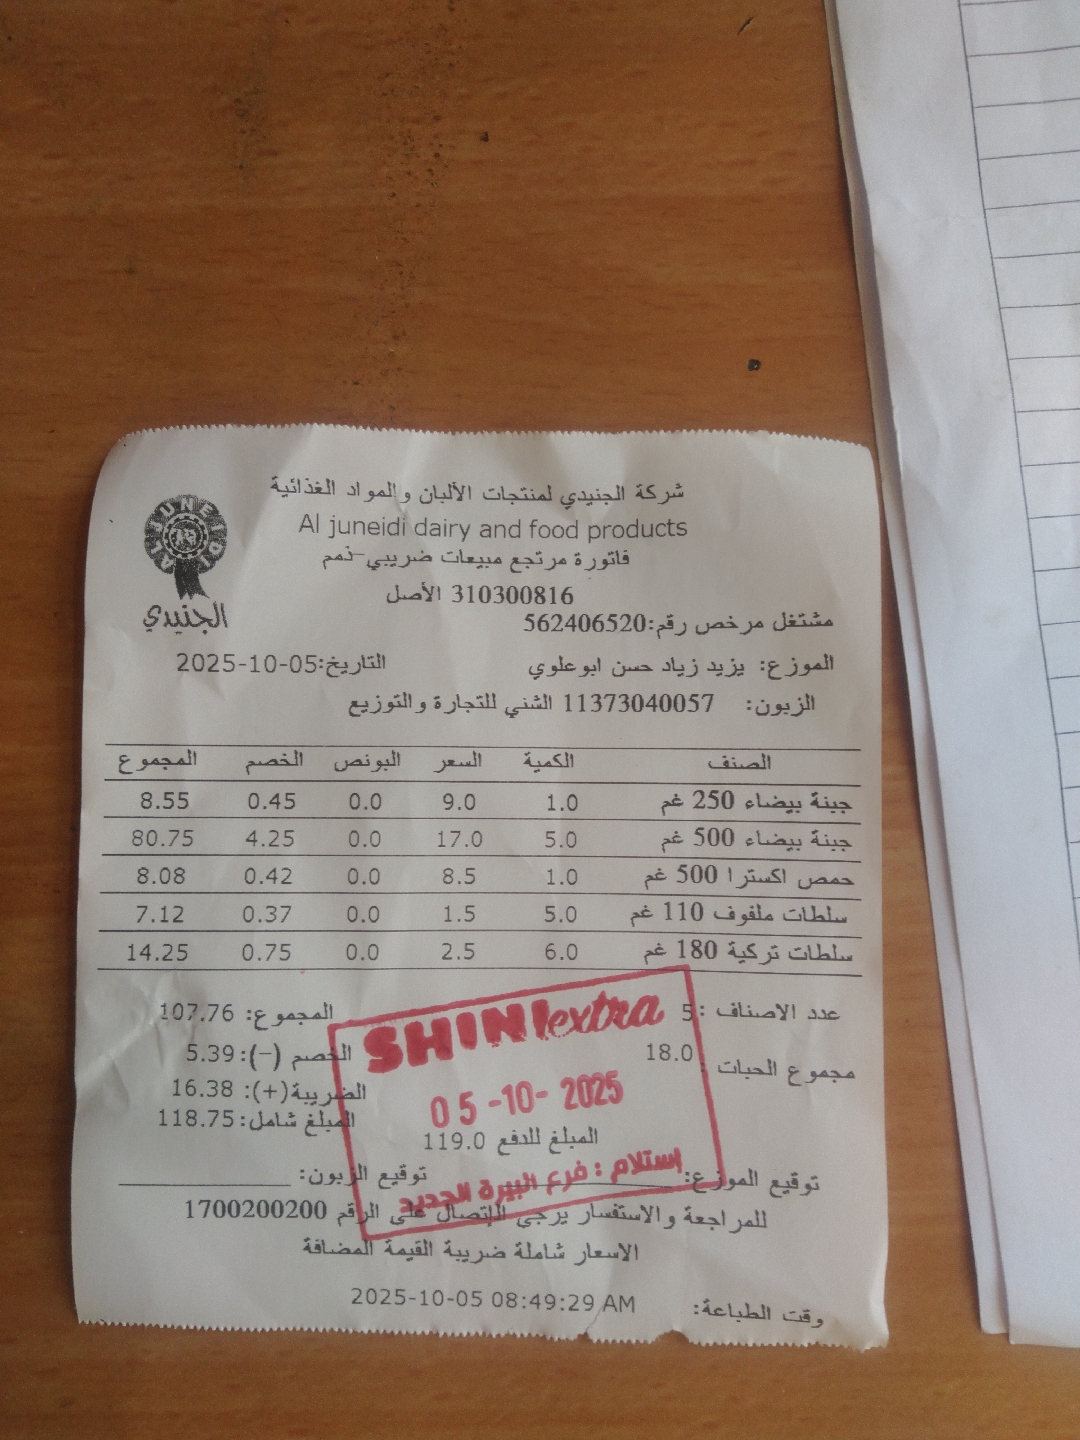 شركة الجنيدي لمنتجات الألبان والمواد الغذائية
AL JUNEIDI
الجنيدي
Al juneidi dairy and food products
فاتورة مرتجع مبيعات ضريبي-ذمم
310300816 الأصل
مشتغل مرخص رقم:562406520
الموزع: يزيد زياد حسن ابوعلوي التاريخ:2025-10-05
الزبون: 11373040057 الشني للتجارة والتوزيع
الصنف الكمية السعر البونص الخصم المجموع
جبنة بيضاء 250 غم 1.0 9.0 0.0 0.45 8.55
جبنة بيضاء 500 غم 5.0 17.0 0.0 4.25 80.75
حمص اكسترا 500 غم 1.0 8.5 0.0 0.42 8.08
سلطات ملفوف 110 غم 5.0 1.5 0.0 0.37 7.12
سلطات تركية 180 غم 6.0 2.5 0.0 0.75 14.25
عدد الاصناف : 5 المجموع: 107.76
مجموع الحبات : 18.0 الخصم (-): 5.39
الضريبة(+): 16.38
المبلغ شامل: 118.75
المبلغ للدفع 119.0
SHINI extra
05-10-2025
استلام : فرع البيرة الجديد
توقيع الموزع: توقيع الزبون:
للمراجعة والاستفسار يرجى الإتصال على الرقم 1700200200
الاسعار شاملة ضريبة القيمة المضافة
وقت الطباعة: 2025-10-05 08:49:29 AM